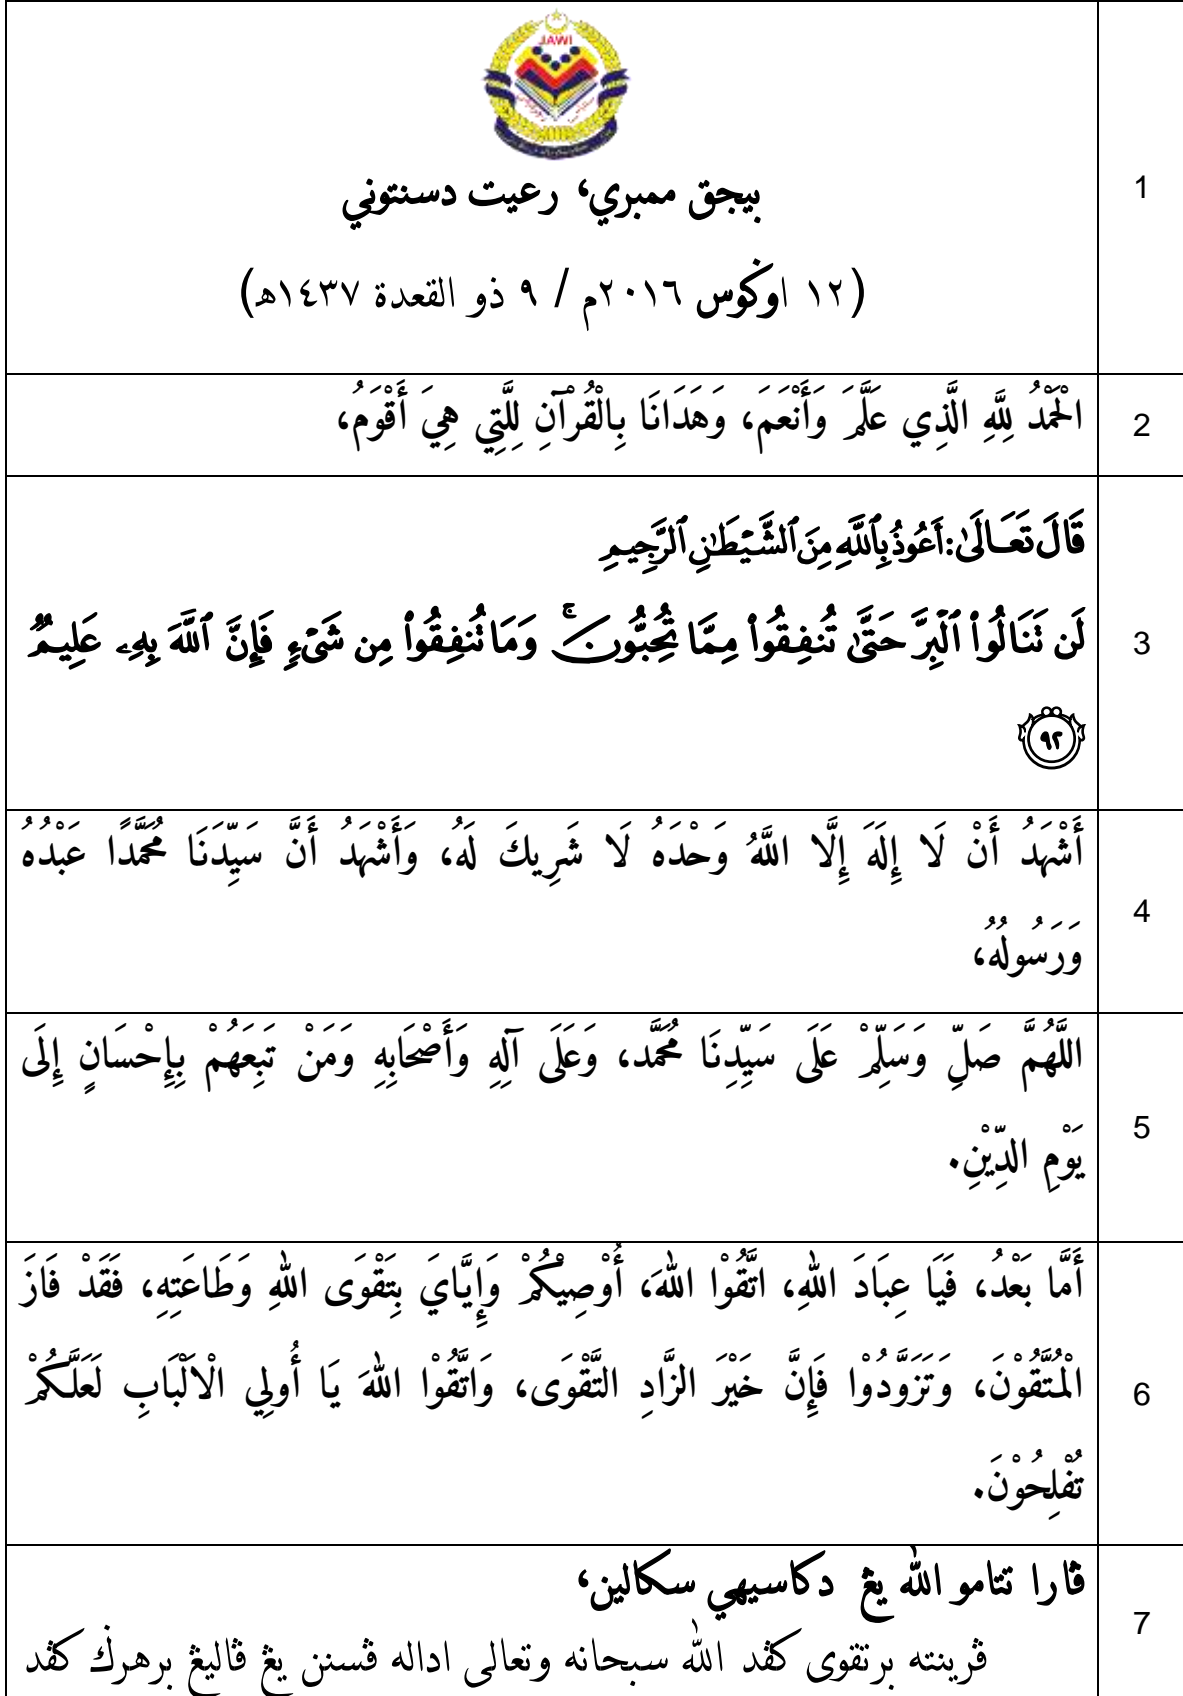 JAWI
بيجق ممبري، رعيت دسنتوني
(١٢ اوݢوس ٢٠١٦م / ٩ ذو القعدة ١٤٣٧هـ)
1
الْحَمْدُ لِلَّهِ الَّذِي عَلَّمَ وَأَنْعَمَ، وَهَدَانَا بِالْقُرْآنِ لِلَّتِي هِيَ أَقْوَمُ،
2
قَالَ تَعَالَىٰ: أَعُوذُ بِٱللَّهِ مِنَ ٱلشَّيْطَٰنِ ٱلرَّجِيمِ
لَن تَنَالُوا۟ ٱلْبِرَّ حَتَّىٰ تُنفِقُوا۟ مِمَّا تُحِبُّونَ ۚ وَمَا تُنفِقُوا۟ مِن شَىْءٍ فَإِنَّ ٱللَّهَ بِهِۦ عَلِيمٌ
٩٢
3
أَشْهَدُ أَنْ لَا إِلَهَ إِلَّا اللَّهُ وَحْدَهُ لَا شَرِيكَ لَهُ، وَأَشْهَدُ أَنَّ سَيِّدَنَا مُحَمَّدًا عَبْدُهُ
وَرَسُولُهُ،
4
اللَّهُمَّ صَلِّ وَسَلِّمْ عَلَى سَيِّدِنَا مُحَمَّد، وَعَلَى آلِهِ وَأَصْحَابِهِ وَمَنْ تَبِعَهُمْ بِإِحْسَانٍ إِلَى
يَوْمِ الدِّيْنِ.
5
أَمَّا بَعْدُ، فَيَا عِبَادَ اللهِ، اتَّقُوْا اللهَ، أُوْصِيْكُمْ وَإِيَّايَ بِتَقْوَى اللهِ وَطَاعَتِهِ، فَقَدْ فَازَ
الْمُتَّقُوْنَ، وَتَزَوَّدُوْا فَإِنَّ خَيْرَ الزَّادِ التَّقْوَى، وَاتَّقُوْا اللهَ يَا أُولِي الْاَلْبَابِ لَعَلَّكُمْ
تُفْلِحُوْنَ.
6
ڤارا تتامو الله يڠ دكاسيهي سكالين،
ڤرينته برتقوى كڤد الله سبحانه وتعالى اداله ڤسنن يڠ ڤاليڠ برهرݢ كڤد
7